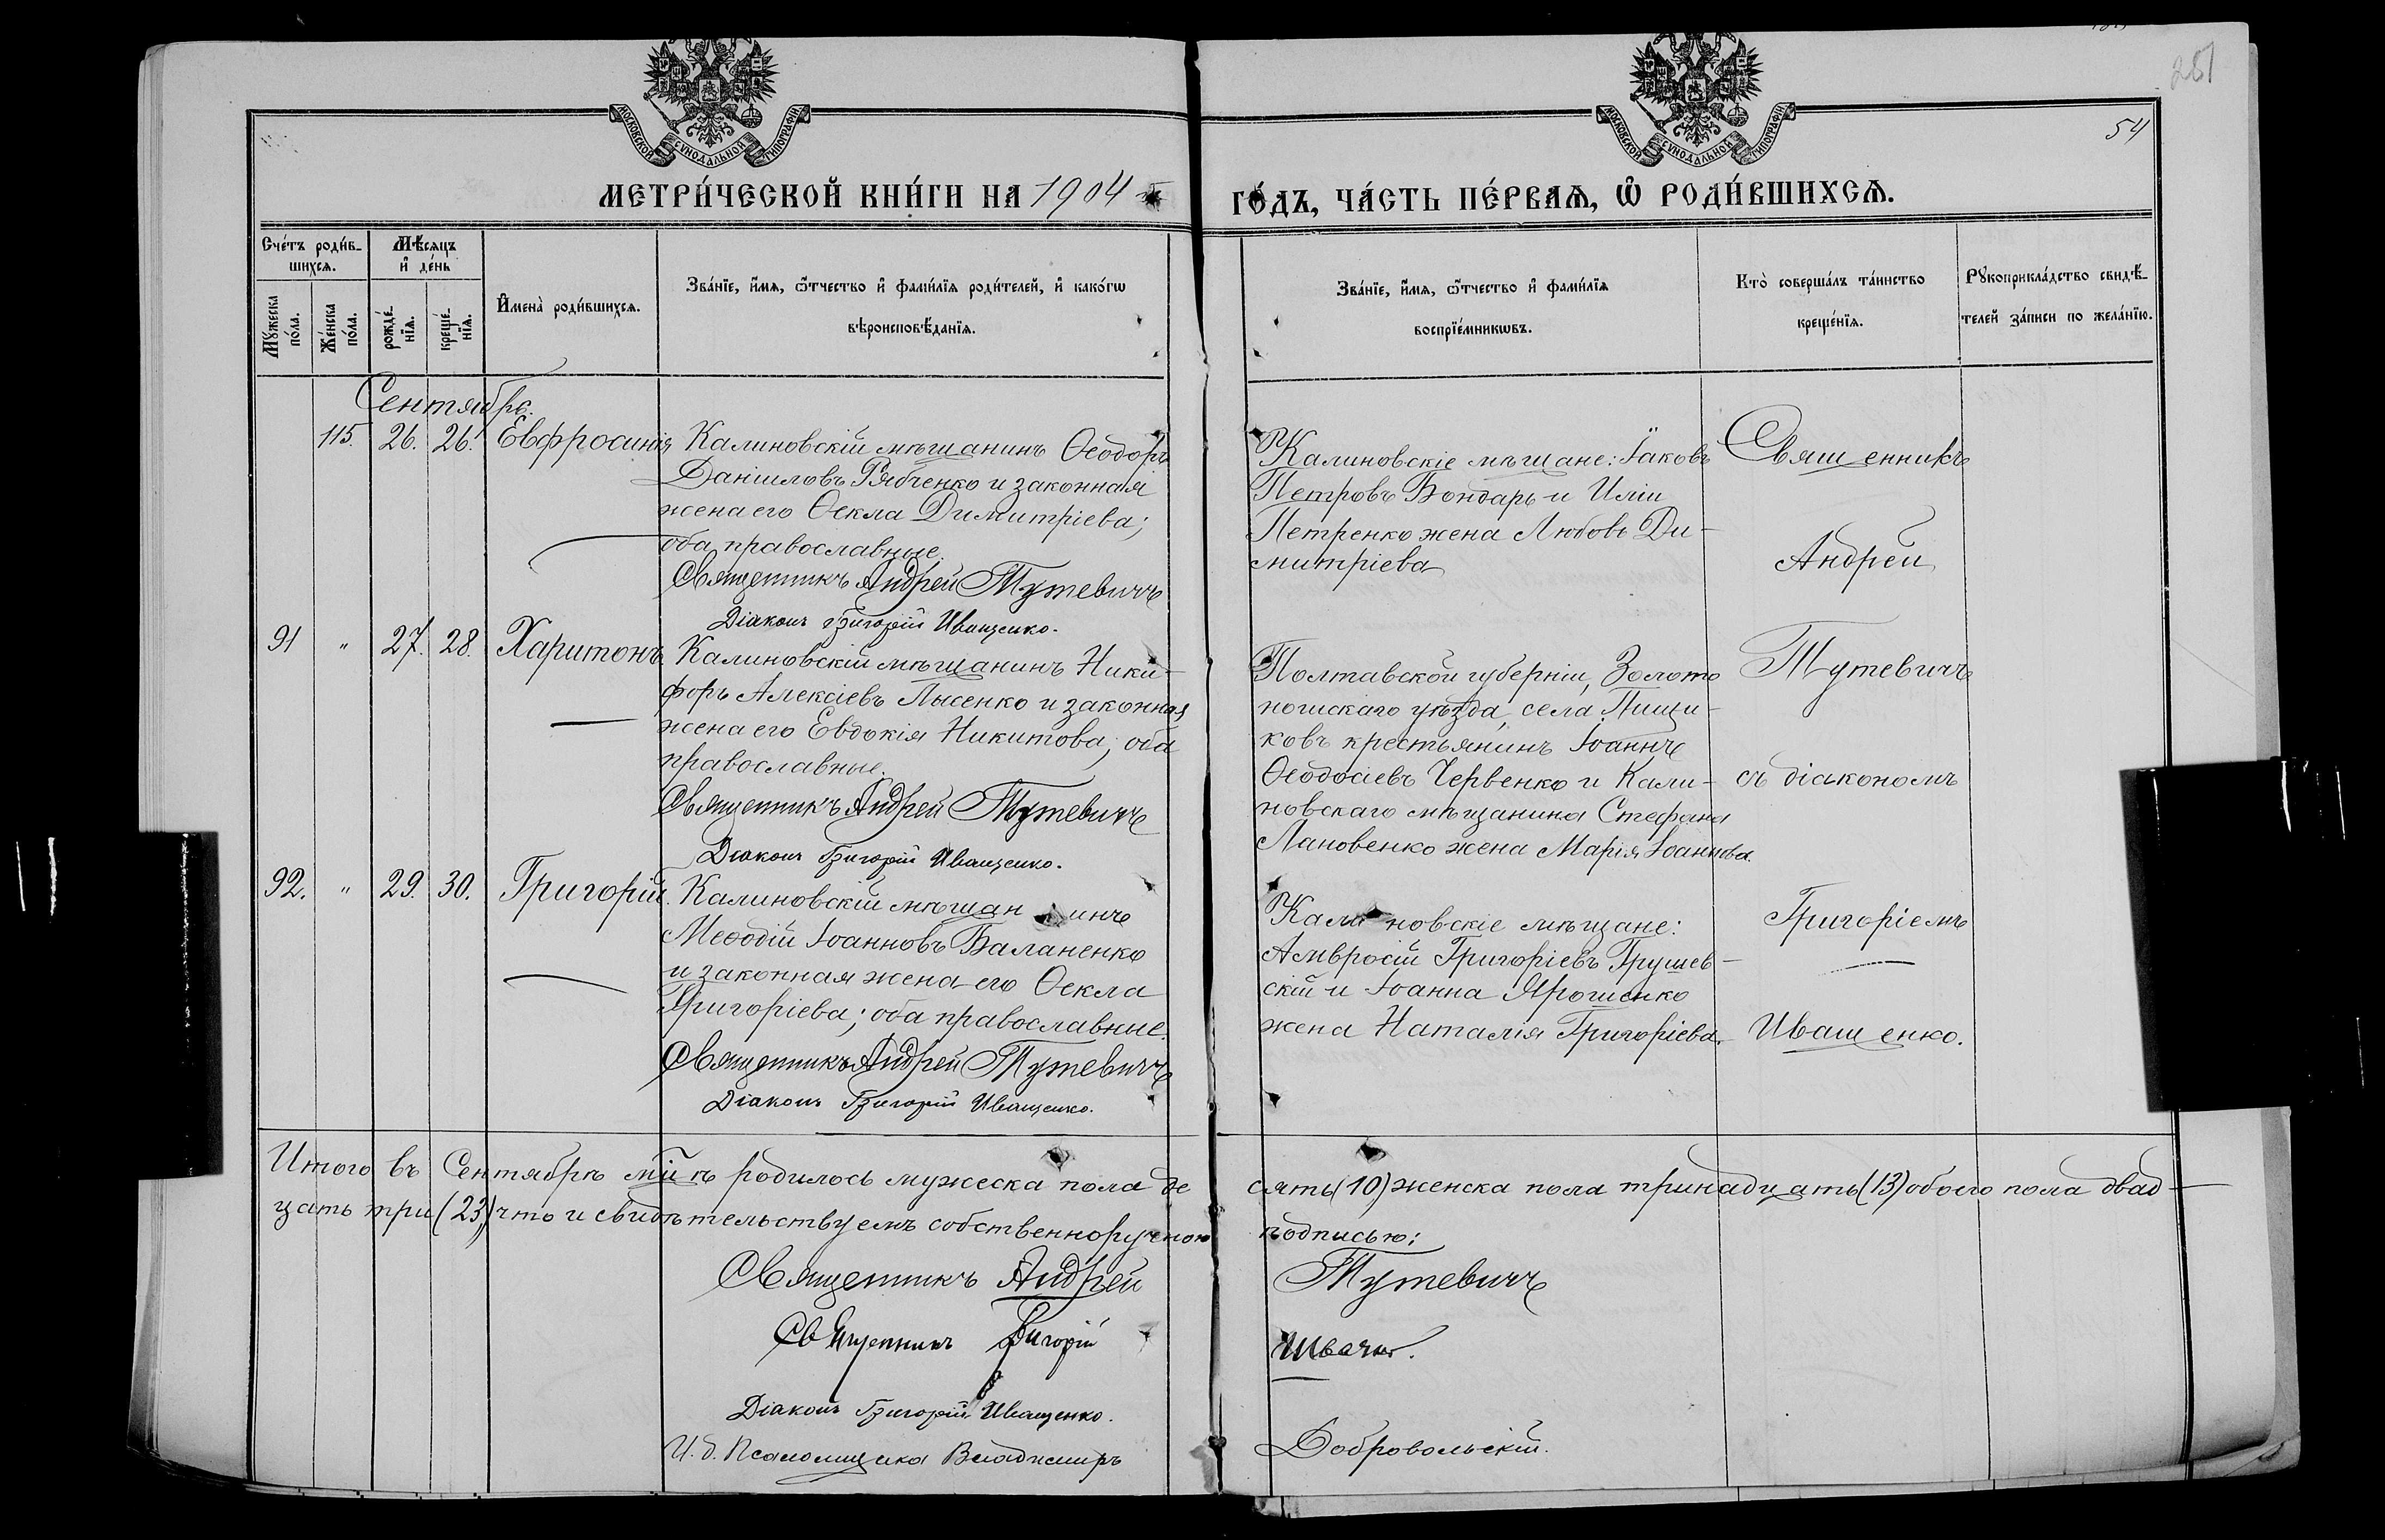 МОСКОВСКОЙ СѴНОДАЛЬНОЙ ТИПОГРАФІИ
МОСКОВСКОЙ СѴНОДАЛЬНОЙ ТИПОГРАФІИ
54
МЕТРИ́ЧЕСКОЙ КНИ́ГИ НА 1904 ГО́ДЪ, ЧА́СТЬ ПЕ́РВАѦ, Ѡ РОДИ́ВШИХСѦ.
Сче́тъ роди́в-
шихсѧ.
Мѣ́сяцъ
и де́нь
Мꙋ́жеска
по́ла.
Же́нска
по́ла.
рожде́-
нїѧ.
креще́-
нїѧ.
Имена̀ роди́вшихсѧ.
Зва́нїе, и́мѧ, ѻ́тчество и фами́лїѧ роди́телей, и како́гѡ
вѣроисповѣ́данїѧ.
Зва́нїе, и́мѧ, ѻ́тчество и фами́лїѧ
воспрїе́мникѡвъ.
Кто̀ соверша́лъ та́инство
креще́нїѧ.
Рꙋкоприкла́дство свидѣ́-
телей за́писи по жела́нїю.
Сентябрь.
115. 26. 26. Евфросинія
Калиновскій мѣщанинъ Ѳеодоръ
Даніиловъ Рябченко и законная
жена его Ѳекла Димитріева;
оба православные.
Священникъ Андрей Тутевичъ
Діаконъ Григорій Иващенко.
Калиновскіе мѣщане: Іаковъ
Петровъ Бондарь и Иліи
Петренко жена Любовь Ди-
митріева
Священникъ
Андрей
Тутевичъ
съ діакономъ
Григоріемъ
Иващенко.
91 " 27. 28. Харитонъ
Калиновскій мѣщанинъ Ники-
форъ Алексіевъ Лысенко и законная
жена его Евдокія Никитова; оба
православные.
Священникъ Андрей Тутевичъ
Діаконъ Григорій Иващенко.
Полтавской губерніи, Золото
ношскаго уѣзда, села Пищи-
ковъ крестьянинъ Іоаннъ
Ѳеодосіевъ Червенко и Кали-
новскаго мѣщанина Стефана
Лановенко жена Марія Іоаннова.
92. " 29. 30. Григорій.
Калиновскій мѣщанинъ
Меѳодій Іоанновъ Баланенко
и законная жена его Ѳекла
Григоріева; оба православные.
Священникъ Андрей Тутевичъ
Діаконъ Григорій Иващенко.
Калиновскіе мѣщане:
Амвросій Григоріевъ Грушев-
скій и Іоанна Ярошенко
жена Наталія Григоріева.
Итого въ Сентябрѣ м͠цѣ родилось мужеска пола десять (10) женска пола тринадцать (13) обоего пола двад-
цать три (23,) что и свидѣтельствуемъ собственноручною подписью:
Священникъ Андрей Тутевичъ
Священникъ Григорій Швачко.
Діаконъ Григорій Иващенко.
И. д. Псаломщика Владимиръ Добровольскій.